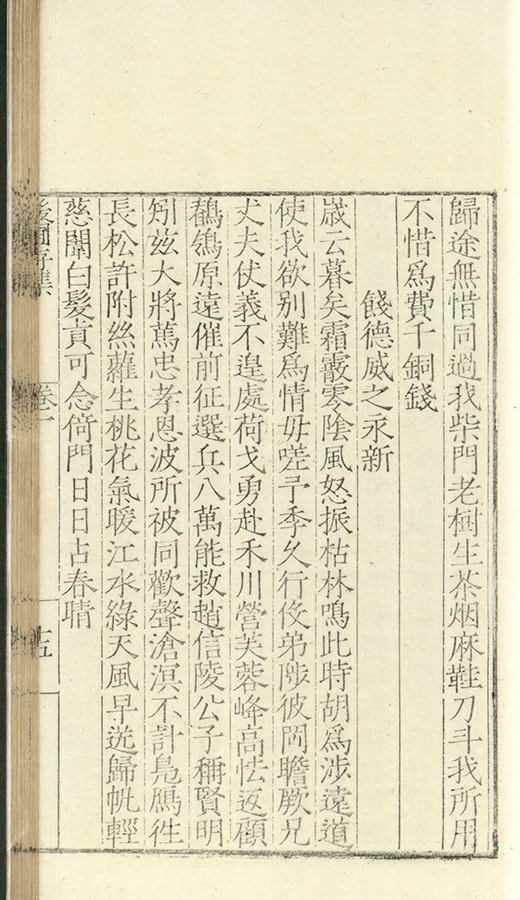 歸途無惜同過我柴門老樹生茶烟麻鞋刀斗我所用
不惜爲費千銅錢
餞德威之永新
歲云暮矣霜霰零陰風怒振枯林鳴此時胡爲涉遠道
使我欲别難爲情毋嗟予季久行役弟陟彼岡瞻厥兄
丈夫仗義不遑處荷戈勇赴禾川營芙蓉峰高怯返顧
鶺鴒原遠催前征選兵八萬能救趙信陵公子稱賢明
矧兹大將篤忠孝恩波所被同歡聲滄溟不計鳧鴈徃
長松許附絲蘿生桃花氣暖江水綠天風早送歸帆輕
慈闈白髮貢可念倚門日日占春晴
集
卷一
十五